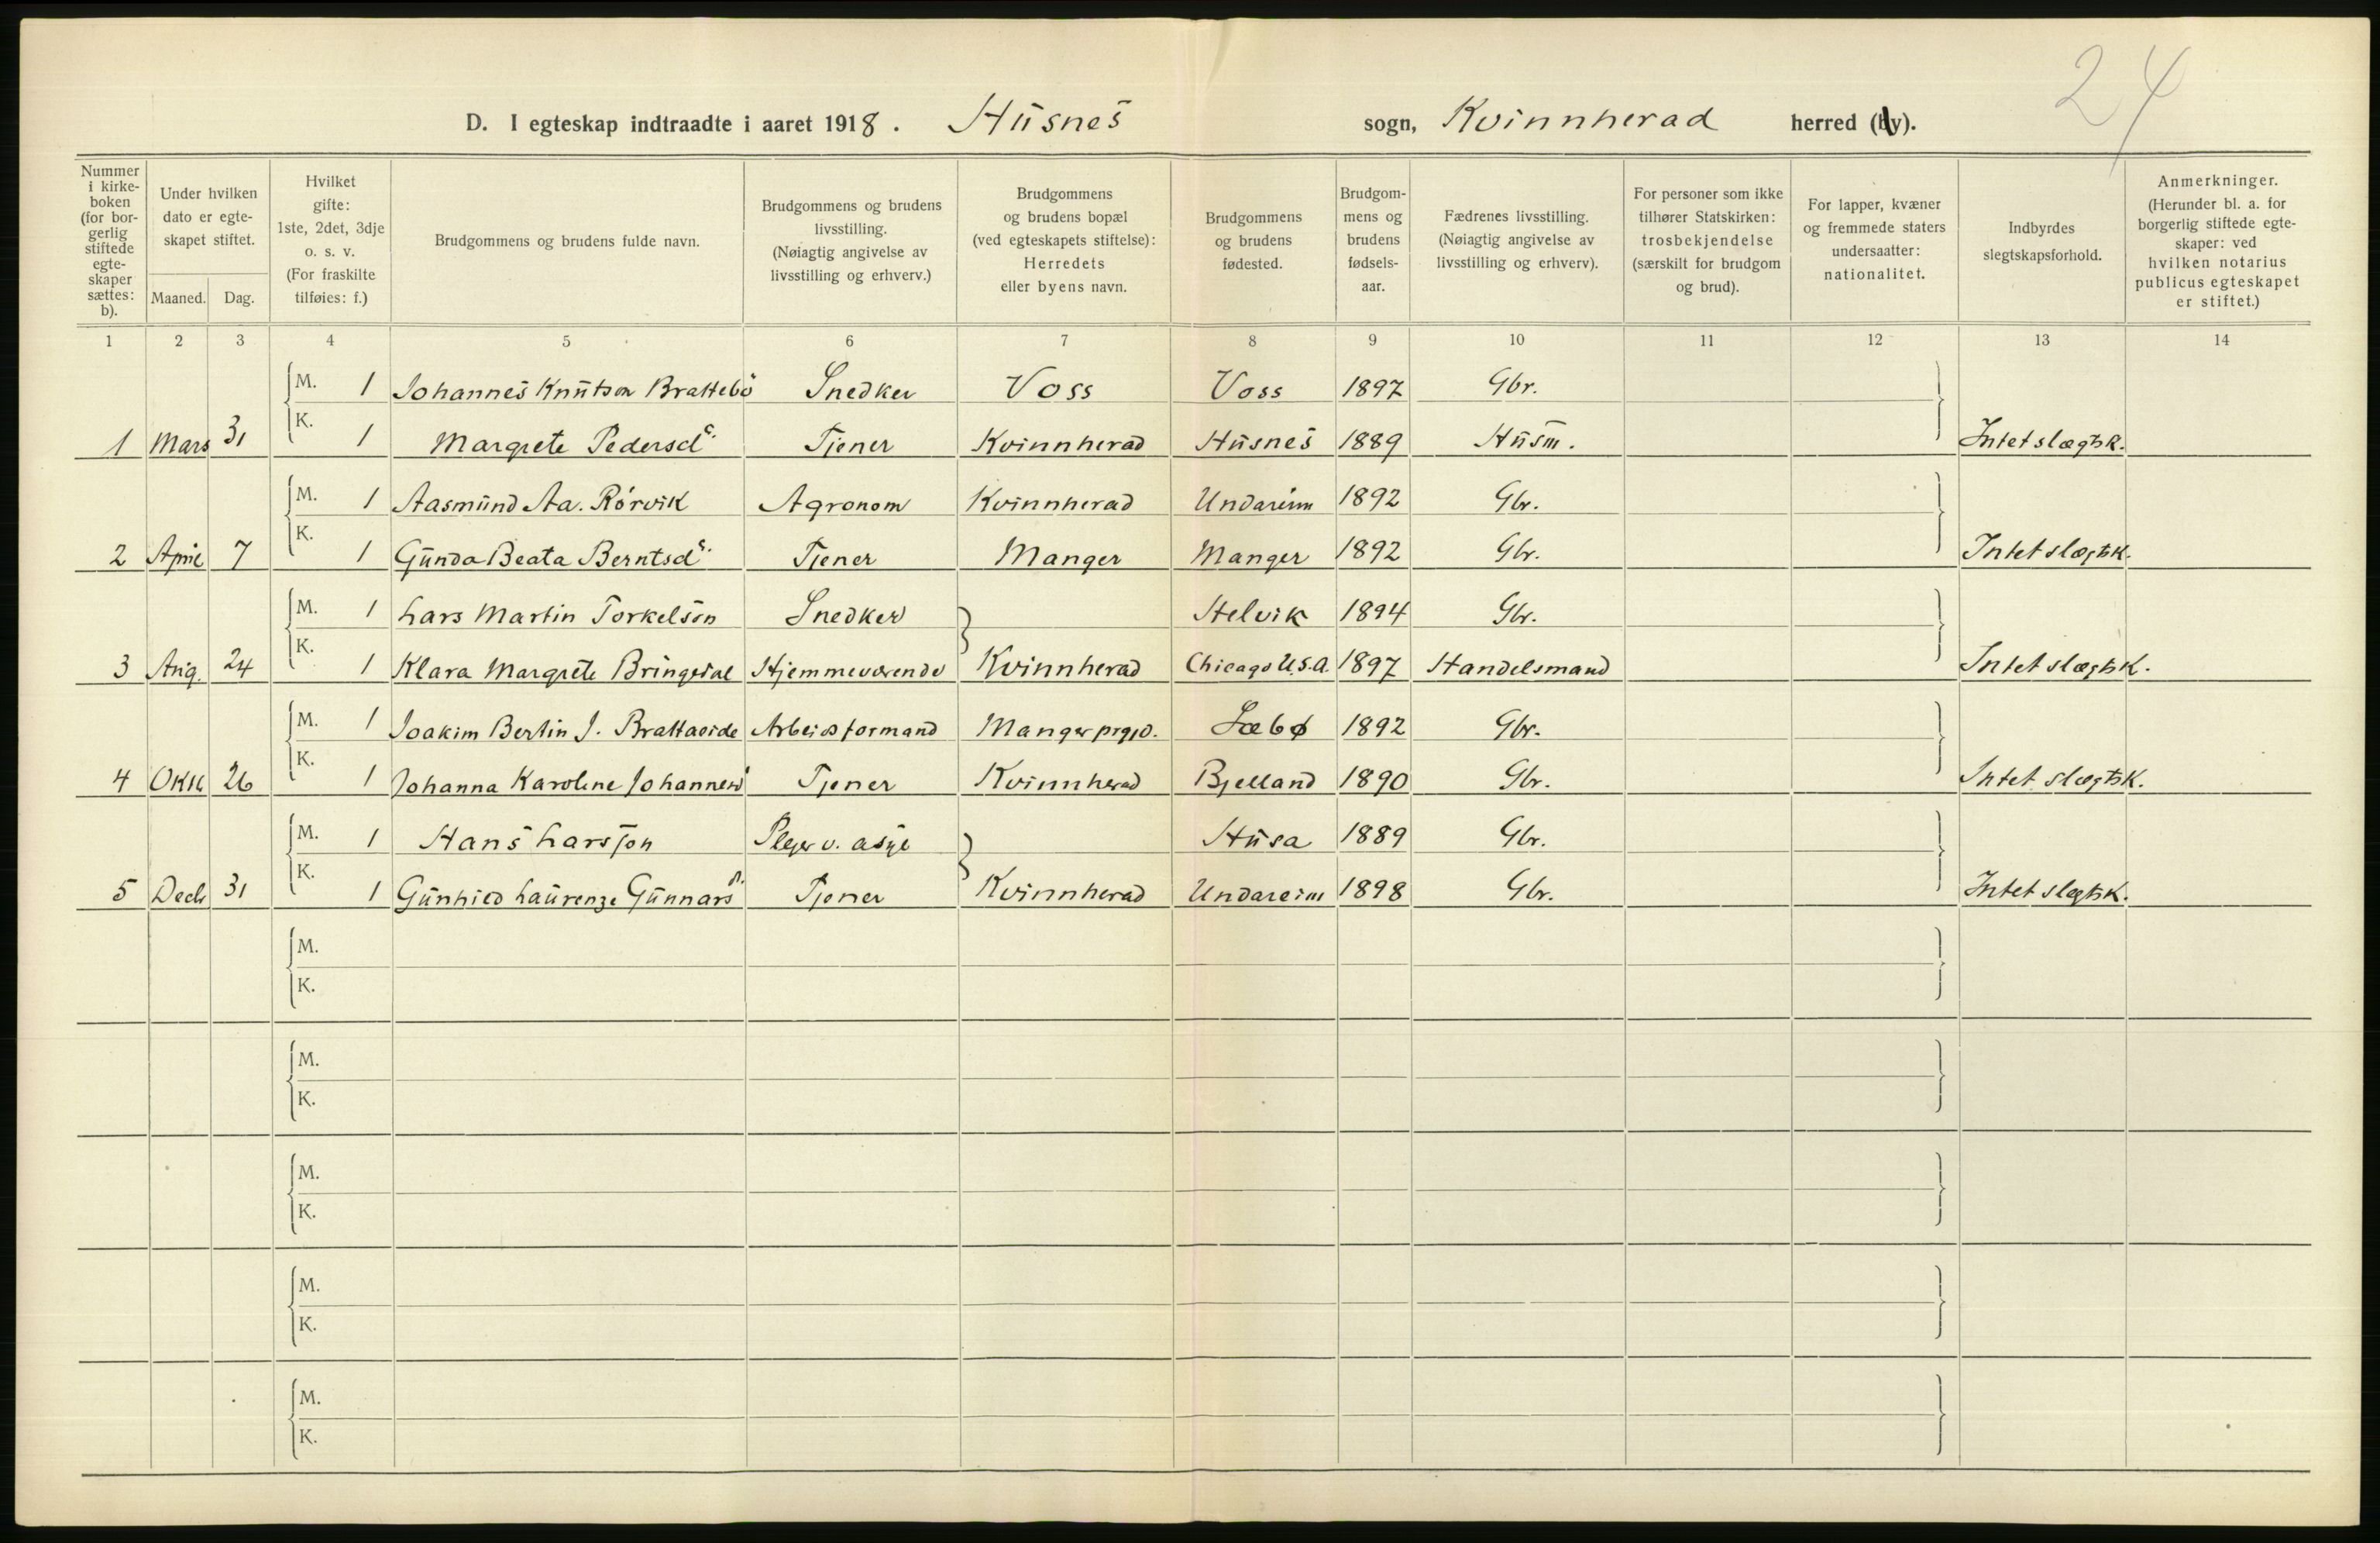 24
D. I egteskap indtraadte i aaret 1918. Husnes sogn, Kvinnherad herred (by).
Nummer i kirkeboken (for borgerlig stiftede egteskaper sættes: b).
Under hvilken dato er egteskapet stiftet.
Maaned. Dag.
Hvilket gifte: 1ste, 2det, 3dje o. s. v. (For fraskilte tilføies: f.)
Brudgommens og brudens fulde navn.
Brudgommens og brudens livsstilling. (Nøiagtig angivelse av livsstilling og erhverv.)
Brudgommens og brudens bopæl (ved egteskapets stiftelse): Herredets eller byens navn.
Brudgommens og brudens fødested.
Brudgommens og brudens fødselsaar.
Fædrenes livsstilling. (Nøiagtig angivelse av livsstilling og erhverv).
For personer som ikke tilhører Statskirken: trosbekjendelse (særskilt for brudgom og brud).
For lapper, kvæner og fremmede staters undersaatter: nationalitet.
Indbyrdes slegtskapsforhold.
Anmerkninger. (Herunder bl. a. for borgerlig stiftede egteskaper: ved hvilken notarius publicus egteskapet er stiftet.)
1 2 3 4 5 6 7 8 9 10 11 12 13 14
M. 1 Johannes Knutson Brattebö Snedker Voss Voss 1897 Gbr.
1 Mars 31 K. 1 Margrete Pedersdr. Tjener Kvinnherad Husnes 1889 Husm. Intet slægtsk.
M. 1 Aasmund Aa. Rörvik Agronom Kvinnherad Undareim 1892 Gbr.
2 April 7 K. 1 Gunda Beata Berntsdr. Tjener Manger Manger 1892 Gbr. Intet slægtsk.
M. 1 Lars Martin Torkelson Snedker Helvik 1894 Gbr.
3 Aug. 24 K. 1 Klara Margrete Bringedal Hjemmeværende Kvinnherad Chicago U.S.A. 1897 Handelsmand Intet slægtsk.
M. 1 Joakim Bertin J. Brattaeide Arbeidsformand Manger prgjd. Sæbø 1892 Gbr.
4 Oktb 26 K. 1 Johanna Karoline Johannesd Tjener Kvinnherad Bjelland 1890 Gbr. Intet slægtsk.
M. 1 Hans Larsson Plejer v. Husa 1889 Gbr.
5 Decb 31 K. 1 Gunhild Laurenze Gunnarsd. Tjener Kvinnherad Undareim 1898 Gbr. Intet slegtsk.
M.
K.
M.
K.
M.
K.
M.
K.
M.
K.